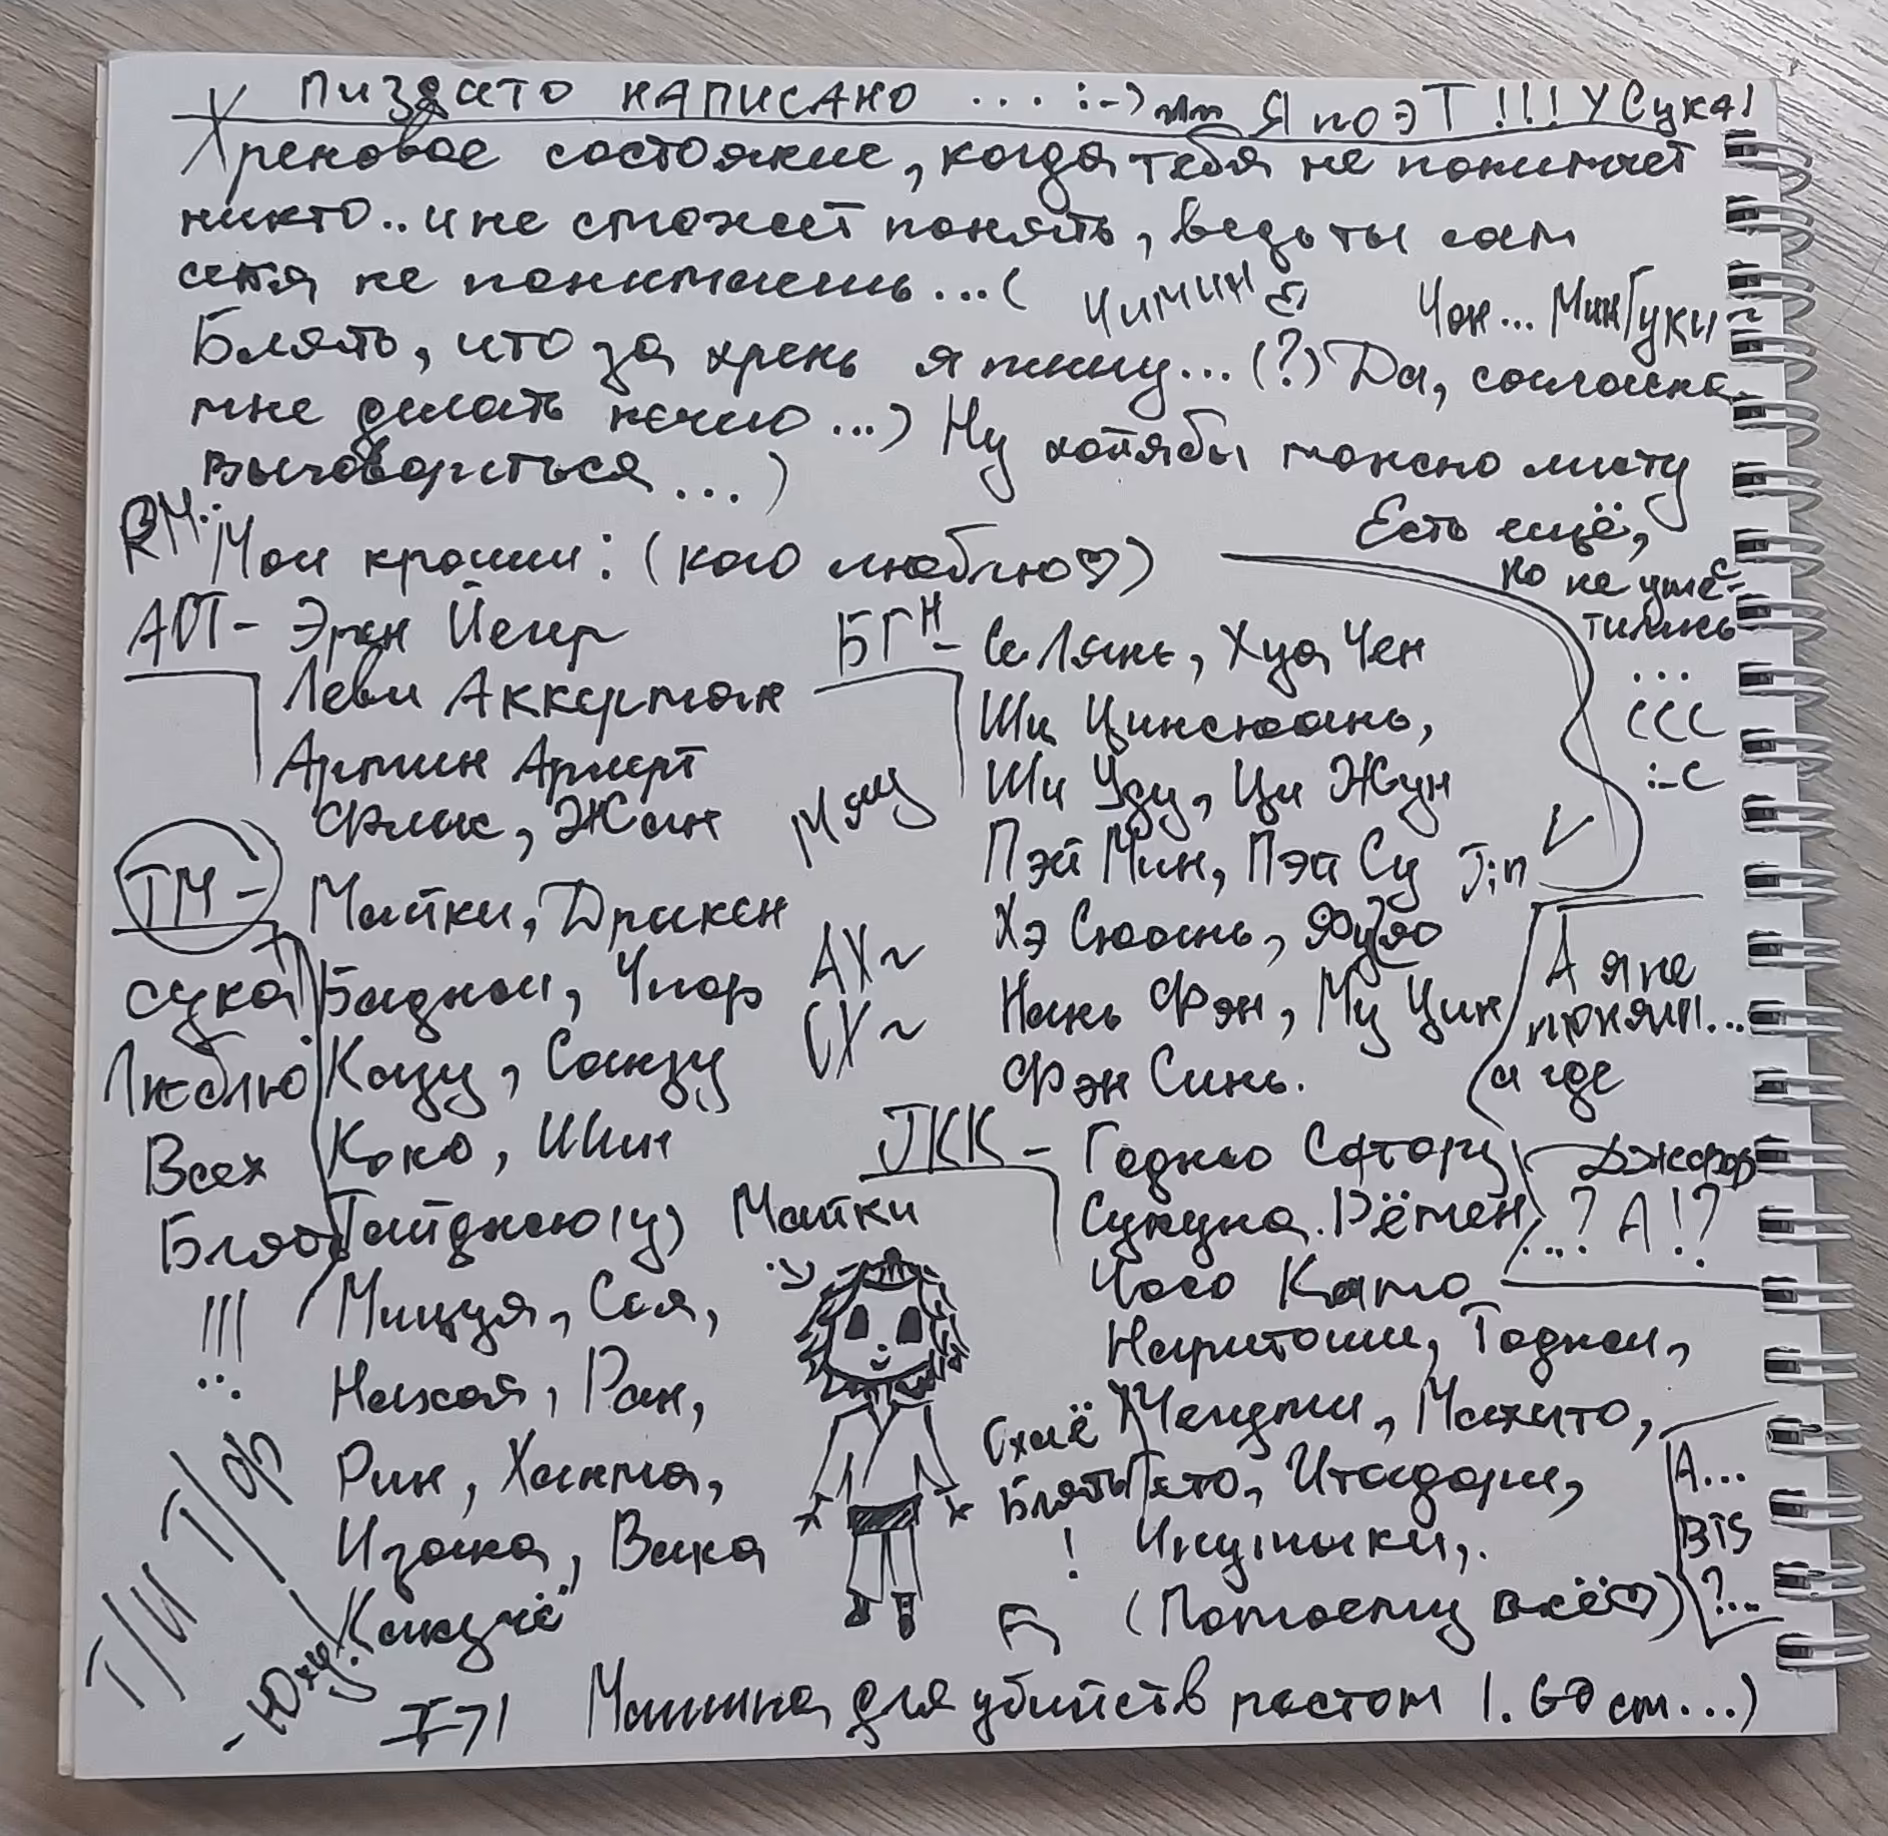 пиздато написано ... :-) Я поэт!!! У сука!
Хреновое состояние, когда тебя не понимает
никто.. и не сможет понять, ведь ты сам
себя не понимаешь...(
Чимин
Чон... МинГуки~
Блять, что за хрень я пишу... (?) Да, согласна
мне делать нечего...) Ну хотябы можно листу
выговориться...)
RM..
Мои крошки: (кого люблю♡)
Есть ещё,
но не уме-
тились
...
(((
:-(
АОТ - Эрен Йегер
Леви Аккерман
Армин Арлерт
Флок, Жан
БГН - Се Лянь, Хуа Чен
Ши Цинсюань,
Ши Уду, Ци Жун
Пэй Мин, Пэй Су
Хэ Сюань,
Нань Фэн, Му Цин
Фэн Синь.
Мяу
Jin V
АХ~
СХ~
ТМ - Майки, Дракен
Баджи, Чифор
Казу, Санзу
Коко, Шин
Тайджю(у)
Мицуя, Сея,
Нахоя, Ран,
Рин, Ханма,
Изана, Вака
Какучё
сука
Люблю
Всех
Блять
!!!
Майки
А я не
понял...
а где
Джефов
...? А!?
JKK - Годжо Сатору
Сукуна. Рёмен
Чосо Камо
Наритоши, Тоджи,
Мегуми, Махито,
Юто, Итадори,
Инумаки,.
(Потоему всё♡)
Ещё
Блять
!
А...
BTS
?..
Т/И Т/Ф
- Юху.
Машина для убийств ростом 1.60 см...)